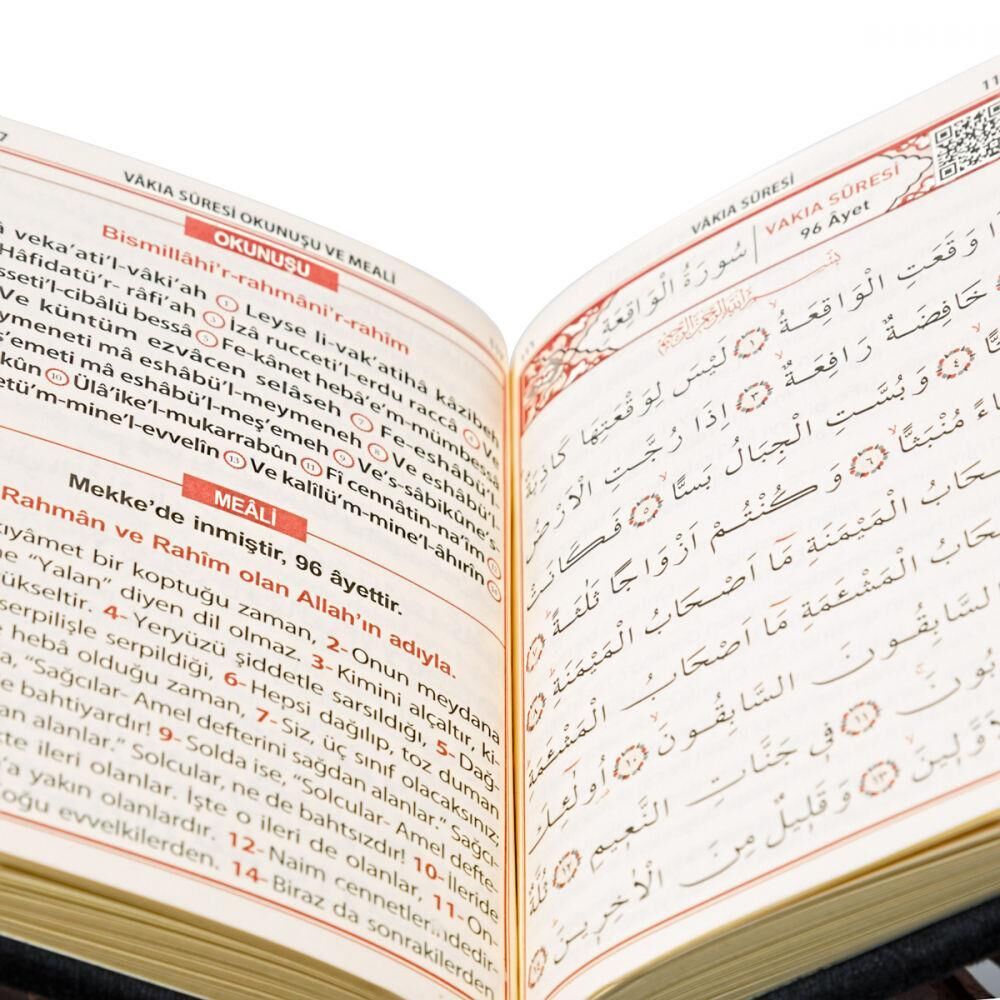 7
VÂKIA SÛRESİ OKUNUŞU VE MEALİ
OKUNUŞU
Bismillâhi’r-rahmâni’r-rahîm
veka’ati’l-vâki’ah 1 Leyse li-vak’atihâ kâzibeh
Hâfidatü’r- râfi’ah 3 İzâ rucceti’l-erdu raccâ 4 Ve
büsseti’l-cibâlü bessâ 5 Fe-kânet hebâ’e’m-mümbessâ
Ve küntüm ezvâcen selâseh 7 Fe-eshâbü’l-
meymeneti mâ eshâbü’l-meymeneh 8 Ve eshâbü’l-
meş’emeti mâ eshâbü’l-meş’emeh 9 Ve’s-sâbikûne’s-
10 Ülâ’ike’l-mukarrabûn 11 Fî cennâtin-na’îm 12
mine’l-evvelîn 13 Ve kalîlü’m-mine’l-âhırîn 14
MEÂLİ
Mekke’de inmiştir, 96 âyettir.
Rahmân ve Rahîm olan Allah’ın adıyla.
kıyâmet bir koptuğu zaman, 2- Onun meydana
“Yalan” diyen dil olmaz. 3- Kimini alçaltır, ki-
yükseltir. 4- Yeryüzü şiddetle sarsıldığı, 5- Dağ-
serpilişle serpildiği, 6- Hepsi dağılıp, toz duman
heba olduğu zaman, 7- Siz, üç sınıf olacaksınız;
“Sağcılar- Amel defterini sağdan alanlar.” Sağcı-
bahtiyardır! 9- Solda ise, “Solcular- Amel defte-
alanlar.” Solcular, ne de bahtsızdır! 10- İleride
ileri olanlar. İşte o ileri de olanlar, 11- On-
yakın olanlardır. 12- Naim cennetlerindedir-
evvelkilerden. 14- Biraz da sonrakilerden
11
VÂKIA SÛRESİ
VAKIA SÛRESİ
96 Âyet
سُورَةُ الْوَاقِعَةِ
بِسْمِ اللّٰهِ الرَّحْمٰنِ الرَّحِيمِ
وَقَعَتِ الْوَاقِعَةُ ١ لَيْسَ لِوَقْعَتِهَا كَاذِبَةٌ
خَافِضَةٌ رَافِعَةٌ ٣ اِذَا رُجَّتِ الْاَرْضُ
٤ وَبُسَّتِ الْجِبَالُ بَسًّا ٥ فَكَانَتْ
مُنْبَثًّا ٦ وَكُنْتُمْ اَزْوَاجًا ثَلٰثَةً ٧
الْمَيْمَنَةِ مَٓا اَصْحَابُ الْمَيْمَنَةِ ٨
الْمَشْـَٔمَةِ مَٓا اَصْحَابُ الْمَشْـَٔمَةِ
السَّابِقُونَ السَّابِقُونَ ١٠ اُو۬لٰٓئِكَ
١١ فِي جَنَّاتِ النَّعِيمِ ١٢ ثُلَّةٌ
١٣ وَقَلِيلٌ مِنَ الْاٰخِرِينَ ١٤